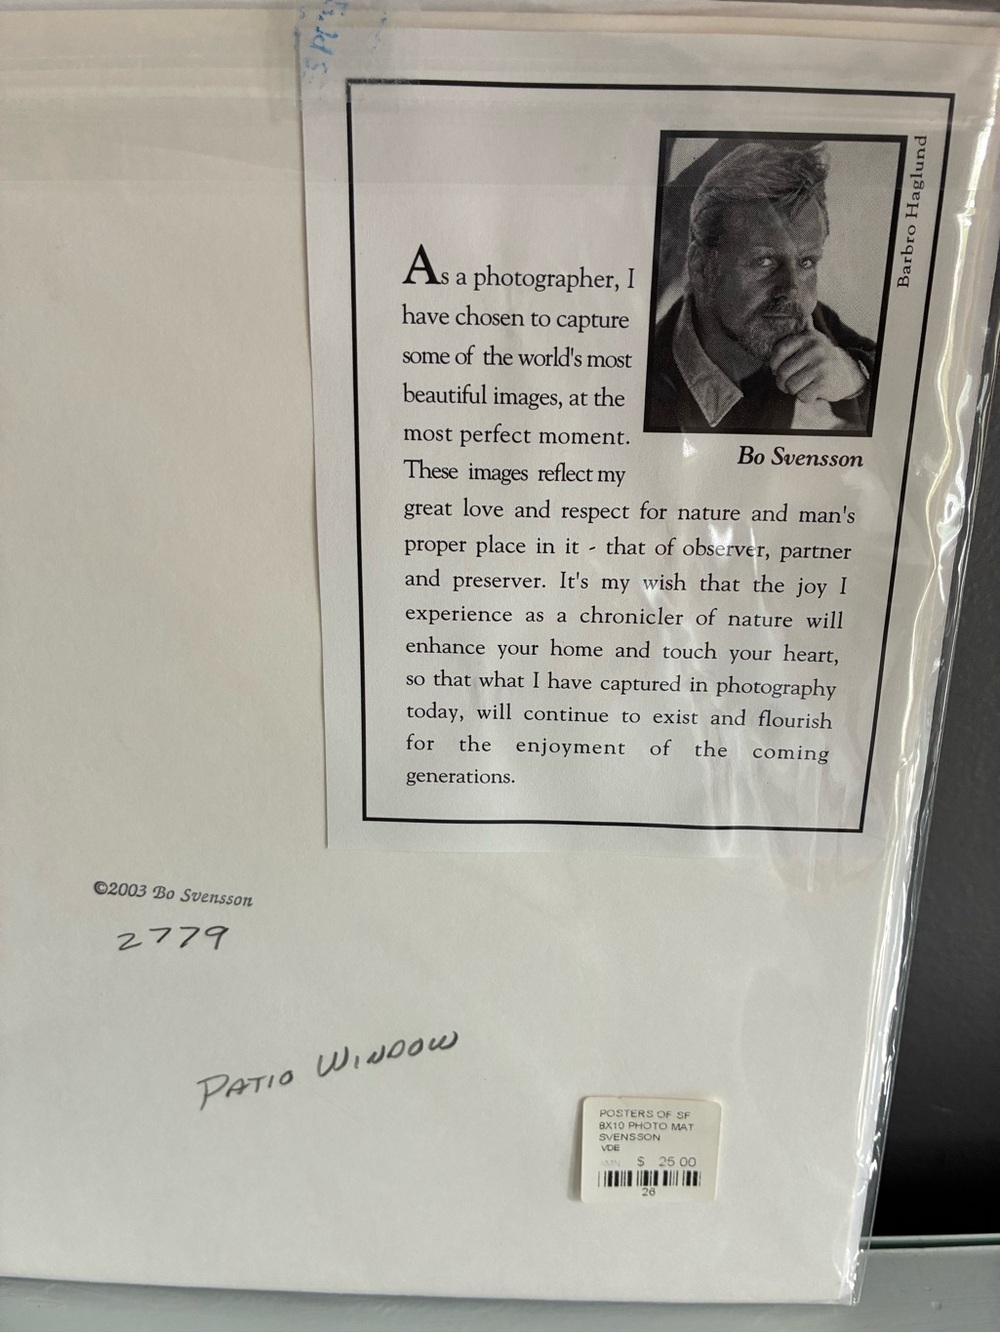 Barbro Haglund
As a photographer, I
have chosen to capture
some of the world's most
beautiful images, at the
most perfect moment.
These images reflect my
Bo Svensson
great love and respect for nature and man's
proper place in it - that of observer, partner
and preserver. It's my wish that the joy I
experience as a chronicler of nature will
enhance your home and touch your heart,
so that what I have captured in photography
today, will continue to exist and flourish
for the enjoyment of the coming
generations.
©2003 Bo Svensson
2779
PATIO WINDOW
POSTERS OF SF
8X10 PHOTO MAT
SVENSSON
VDE
$ 25 00
26